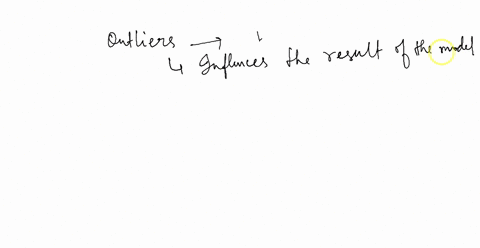 Outliers →
↳ Influnces the result of the model